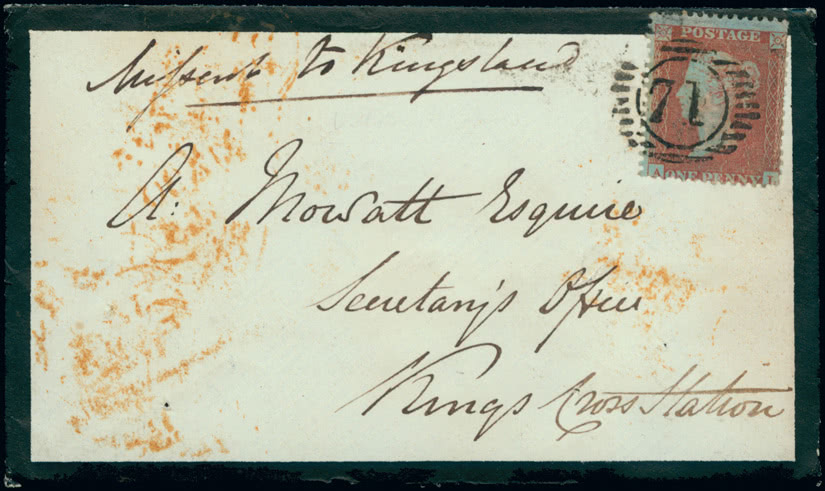 Missent to Kingsland
POSTAGE
71
A ONE PENNY L
A: Mowatt Esquire
Secretary's Office
Kings Cross Station